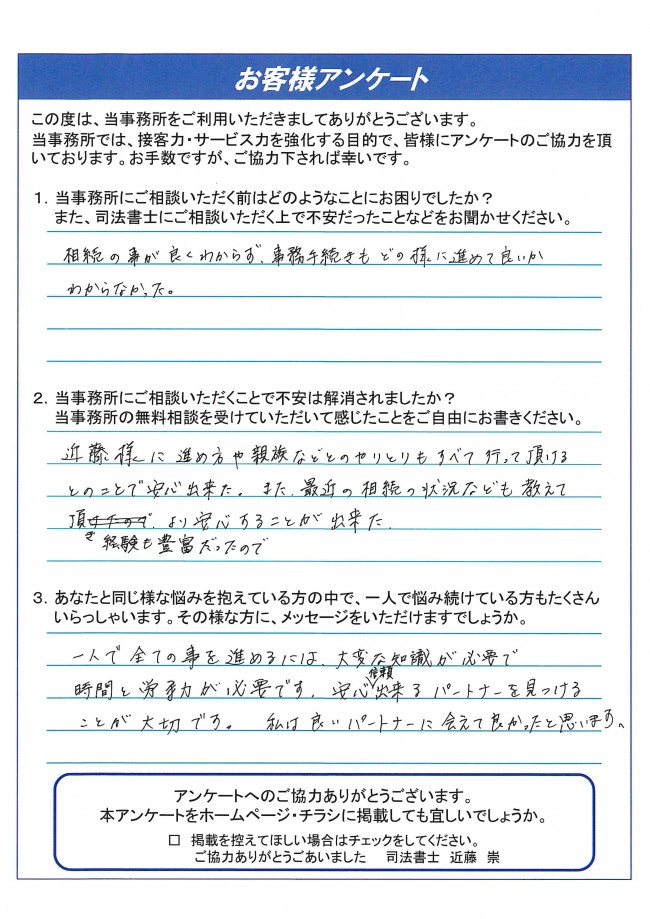 お客様アンケート
この度は、当事務所をご利用いただきましてありがとうございます。
当事務所では、接客力・サービス力を強化する目的で、皆様にアンケートのご協力を頂
いております。お手数ですが、ご協力下されば幸いです。
1. 当事務所にご相談いただく前はどのようなことにお困りでしたか？
また、司法書士にご相談いただく上で不安だったことなどをお聞かせください。
相続の事が良くわからず、事務手続きもどの様に進めて良いか
わからなかった。
2. 当事務所にご相談いただくことで不安は解消されましたか？
当事務所の無料相談を受けていただいて感じたことをご自由にお書きください。
近藤様に進め方や親族などとのやりとりもすべて行って頂ける
とのことで安心出来た。また、最近の相続の状況なども教えて
頂けたので、より安心することが出来た。
き 経験も豊富だったので
3. あなたと同じ様な悩みを抱えている方の中で、一人で悩み続けている方もたくさん
いらっしゃいます。その様な方に、メッセージをいただけますでしょうか。
一人で全ての事を進めるには、大変な知識が必要で
信頼
時間と労力が必要です。安心出来るパートナーを見つける
ことが大切です。 私は良いパートナーに会えて良かったと思います。
アンケートへのご協力ありがとうございます。
本アンケートをホームページ・チラシに掲載しても宜しいでしょうか。
□ 掲載を控えてほしい場合はチェックをしてください。
ご協力ありがとうごあいました 司法書士 近藤 崇